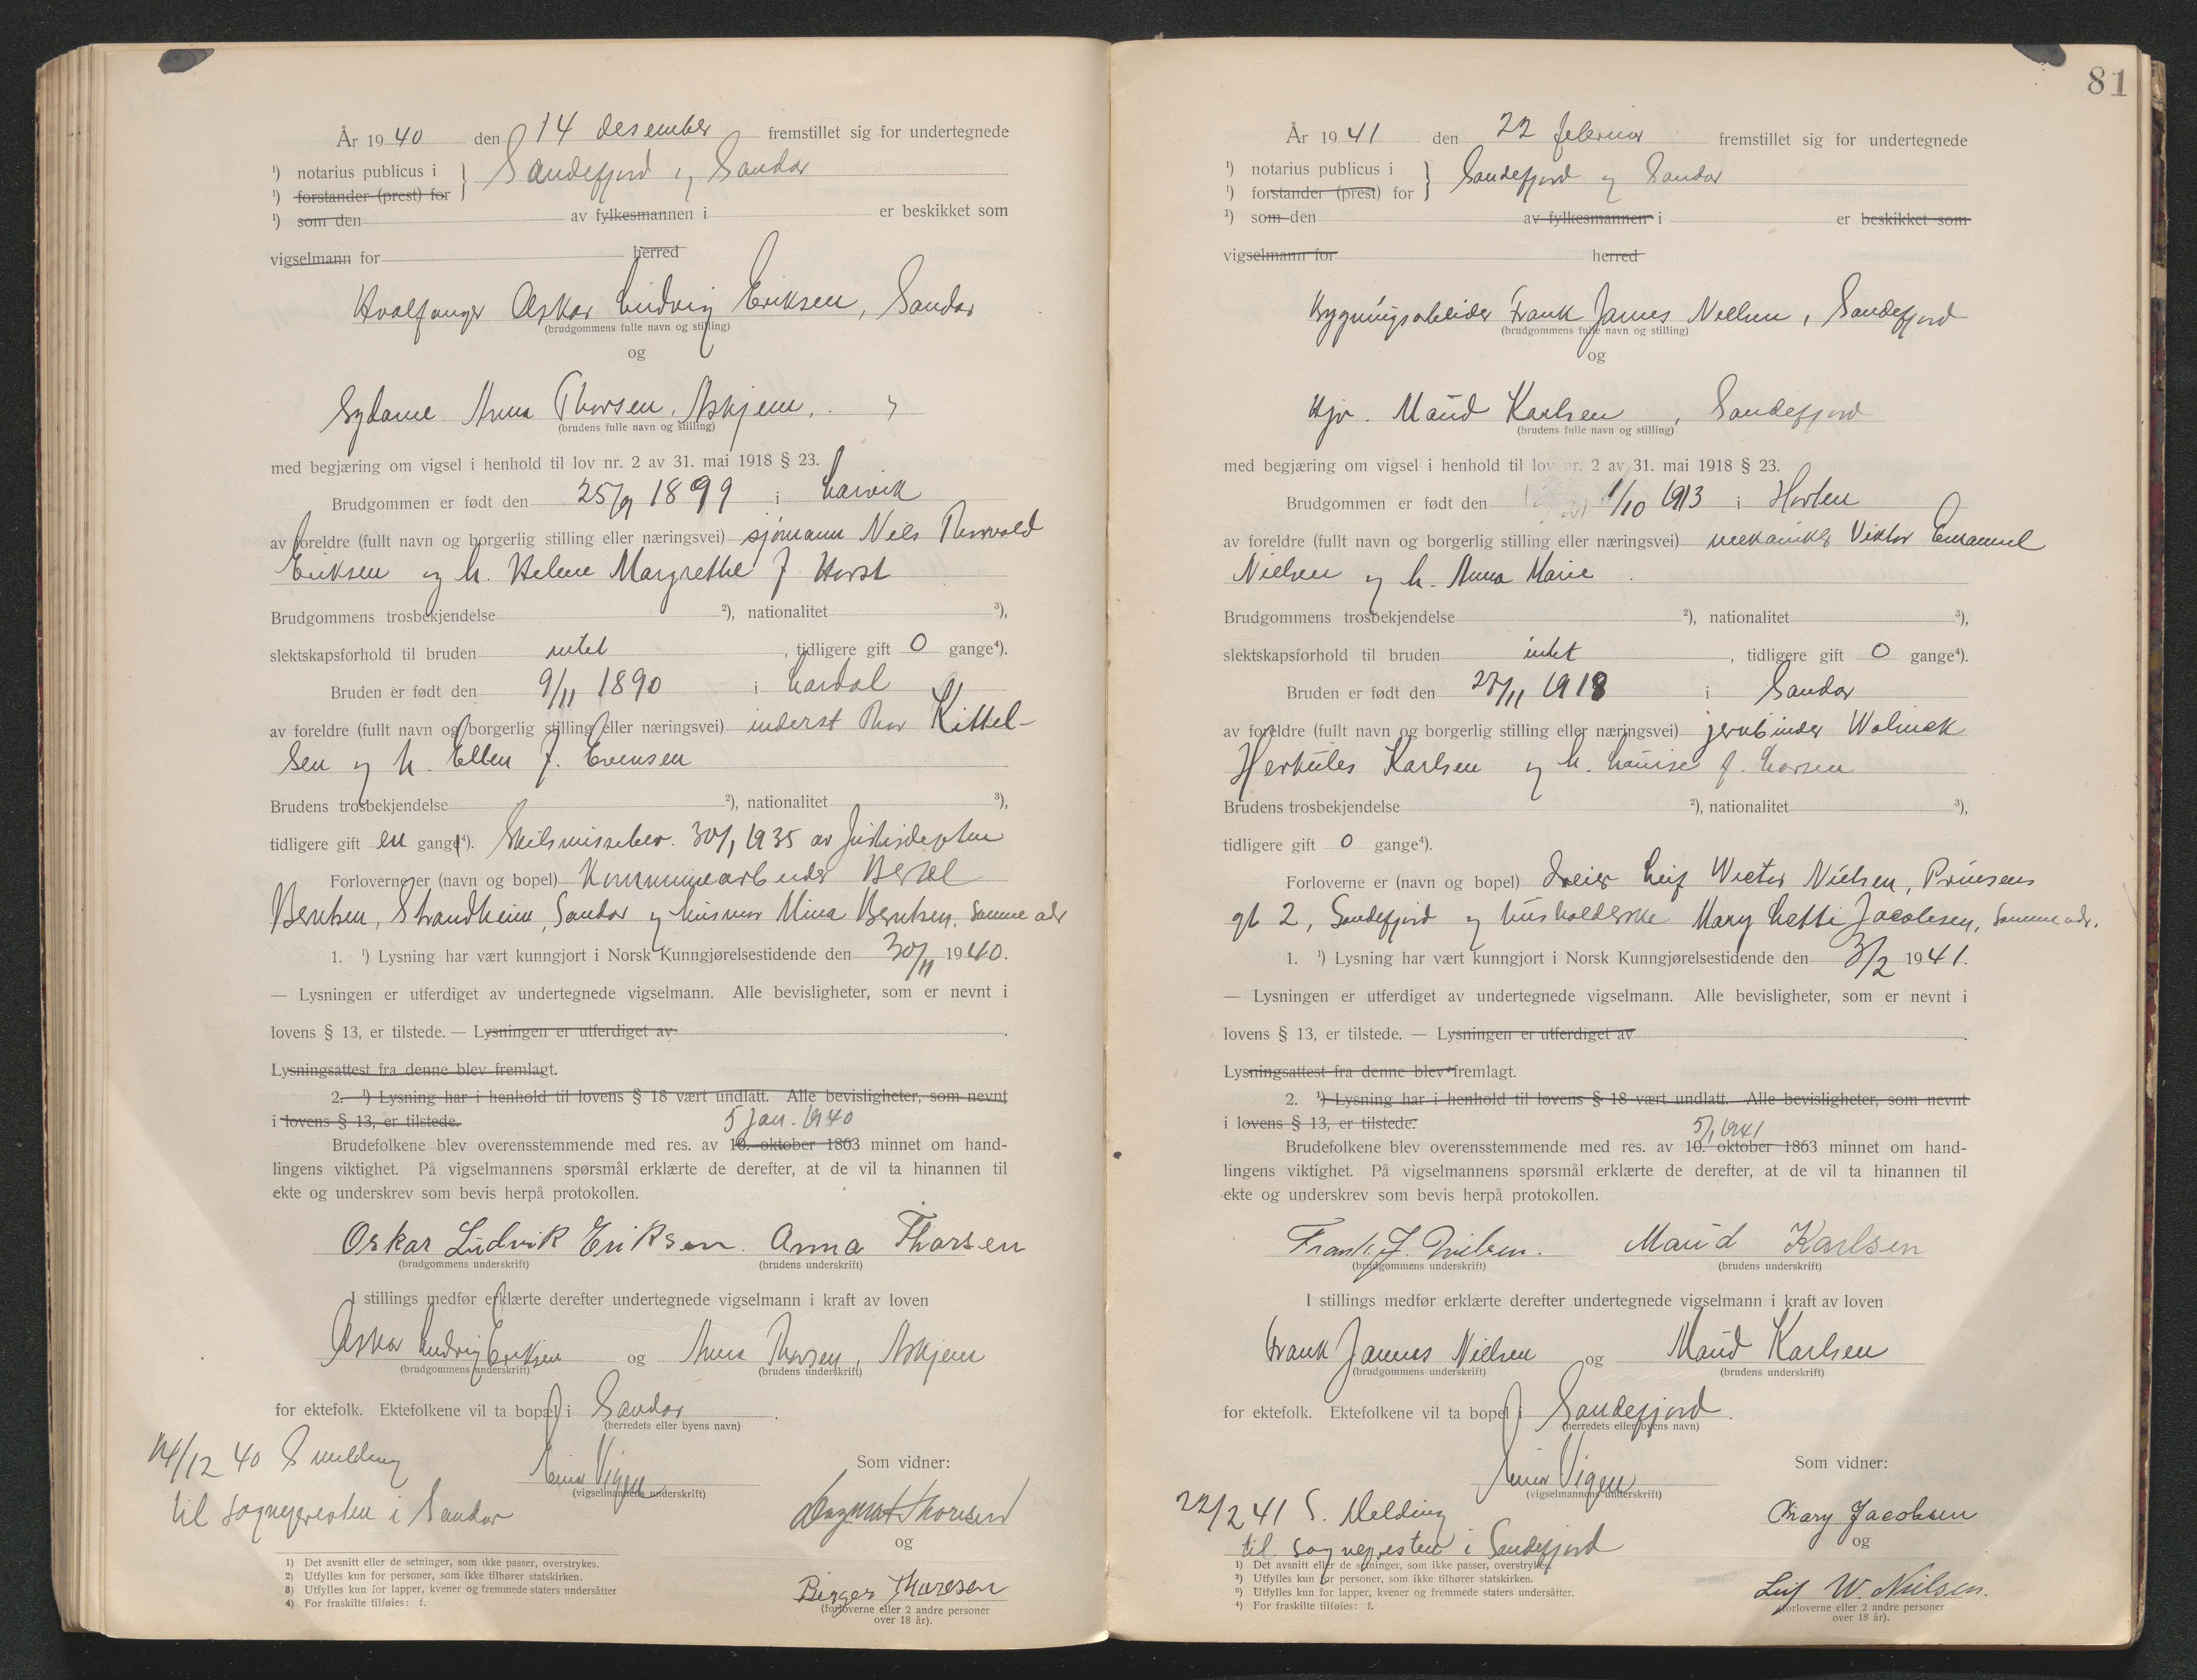 År 1940 den 14 desember fremstillet sig for undertegnede
¹) notarius publicus i } Sandefjord og Sandar
¹) forstander (prest) for
¹) som den av fylkesmannen i er beskikket som
vigselmann for herred
Hvalfanger Oskar Ludvig Eriksen, Sandar
(brudgommens fulle navn og stilling)
og
Sydame Anna Thorsen, Askjem, "
(brudens fulle navn og stilling)
med begjæring om vigsel i henhold til lov nr. 2 av 31. mai 1918 § 23.
Brudgommen er født den 25/9 1899 i Larvik
av foreldre (fullt navn og borgerlig stilling eller næringsvei) sjømann Nils Thorvald
Eriksen og h. Helene Margrethe f. Horst
Brudgommens trosbekjendelse ²), nationalitet ³),
slektskapsforhold til bruden intet , tidligere gift 0 gange⁴).
Bruden er født den 9/11 1890 i Lardal
av foreldre (fullt navn og borgerlig stilling eller næringsvei) inderst Thor Kittel-
sen og h. Ellen f. Evensen
Brudens trosbekjendelse ²), nationalitet ³),
tidligere gift en gange⁴). Skilsmissebev. 30/1 1935 av Justisdepten
Forloverne er (navn og bopel) Kommunearbeider Bertel
Berntsen, Strandheim, Sandar og husmor Mina Berntsen, samme adr
1. ¹) Lysning har vært kunngjort i Norsk Kunngjørelsestidende den 30/11 1940.
— Lysningen er utferdiget av undertegnede vigselmann. Alle bevisligheter, som er nevnt i
lovens § 13, er tilstede. — Lysningen er utferdiget av .
Lysningsattest fra denne blev fremlagt.
2. ¹) Lysning har i henhold til lovens § 18 vært undlatt. Alle bevisligheter, som nevnt
i lovens § 13, er tilstede.
5 jan. 1940
Brudefolkene blev overensstemmende med res. av 10. oktober 1863 minnet om hand-
lingens viktighet. På vigselmannens spørsmål erklærte de derefter, at de vil ta hinannen til
ekte og underskrev som bevis herpå protokollen.
Oskar Ludvik Eriksen. Anna Thorsen
(brudgommens underskrift) (brudens underskrift)
I stillings medfør erklærte derefter undertegnede vigselmann i kraft av loven
Oskar Ludvig Eriksen og Anna Thorsen, Askjem
(brudgommens underskrift) (brudens underskrift)
for ektefolk. Ektefolkene vil ta bopæl i Sandar .
(herredets eller byens navn)
14/12 40 S melding
til sognepresten i Sandar
Einar Vigen
(vigselmannens underskrift)
Som vidner:
Dagmar Thoresen
og
Birger Thoresen
(forloverne eller 2 andre personer
over 18 år).
1) Det avsnitt eller de setninger, som ikke passer, overstrykes.
2) Utfylles kun for personer, som ikke tilhører statskirken.
3) Utfylles kun for lapper, kvener og fremmede staters undersåtter
4) For fraskilte tilføies: f.
81
År 1941 den 22 februar fremstillet sig for undertegnede
¹) notarius publicus i } Sandefjord og Sandar
¹) forstander (prest) for
¹) som den av fylkesmannen i er beskikket som
vigselmann for herred
Bygningsarbeider Frank James Nielsen, Sandefjord
(brudgommens fulle navn og stilling)
og
Hjv. Maud Karlsen, Sandefjord
(brudens fulle navn og stilling)
med begjæring om vigsel i henhold til lov nr. 2 av 31. mai 1918 § 23.
Brudgommen er født den 1/10 1913 i Horten
av foreldre (fullt navn og borgerlig stilling eller næringsvei) mekaniker Viktor Emanuel
Nielsen og h. Anna Marie
Brudgommens trosbekjendelse ²), nationalitet ³),
slektskapsforhold til bruden intet , tidligere gift 0 gange⁴).
Bruden er født den 27/11 1918 i Sandar
av foreldre (fullt navn og borgerlig stilling eller næringsvei) jernbinder
Herkules Karlsen og h. Louise f. Larsen
Brudens trosbekjendelse ²), nationalitet ³),
tidligere gift 0 gange⁴).
Forloverne er (navn og bopel) dreier Leif Victor Nielsen, Prinsens
gt 2, Sandefjord og husholderske Mary Jacobsen, samme adr.
1. ¹) Lysning har vært kunngjort i Norsk Kunngjørelsestidende den 3/2 1941.
— Lysningen er utferdiget av undertegnede vigselmann. Alle bevisligheter, som er nevnt i
lovens § 13, er tilstede. — Lysningen er utferdiget av .
Lysningsattest fra denne blev fremlagt.
2. ¹) Lysning har i henhold til lovens § 18 vært undlatt. Alle bevisligheter, som nevnt
i lovens § 13, er tilstede.
5/1 1941
Brudefolkene blev overensstemmende med res. av 10. oktober 1863 minnet om hand-
lingens viktighet. På vigselmannens spørsmål erklærte de derefter, at de vil ta hinannen til
ekte og underskrev som bevis herpå protokollen.
Frank J. Nielsen. Maud Karlsen
(brudgommens underskrift) (brudens underskrift)
I stillings medfør erklærte derefter undertegnede vigselmann i kraft av loven
Frank James Nielsen og Maud Karlsen
(brudgommens underskrift) (brudens underskrift)
for ektefolk. Ektefolkene vil ta bopel i Sandefjord .
(herredets eller byens navn)
Einar Vigen
(vigselmannens underskrift)
22/2 41 S. Melding
til sognepresten i Sandefjord
Som vidner:
Mary Jacobsen
og
Leif W. Nielsen.
(forloverne eller 2 andre personer
over 18 år).
1) Det avsnitt eller de setninger, som ikke passer, overstrykes.
2) Utfylles kun for personer, som ikke tilhører statskirken.
3) Utfylles kun for lapper, kvener og fremmede staters undersåtter.
4) For fraskilte tilføies: f.